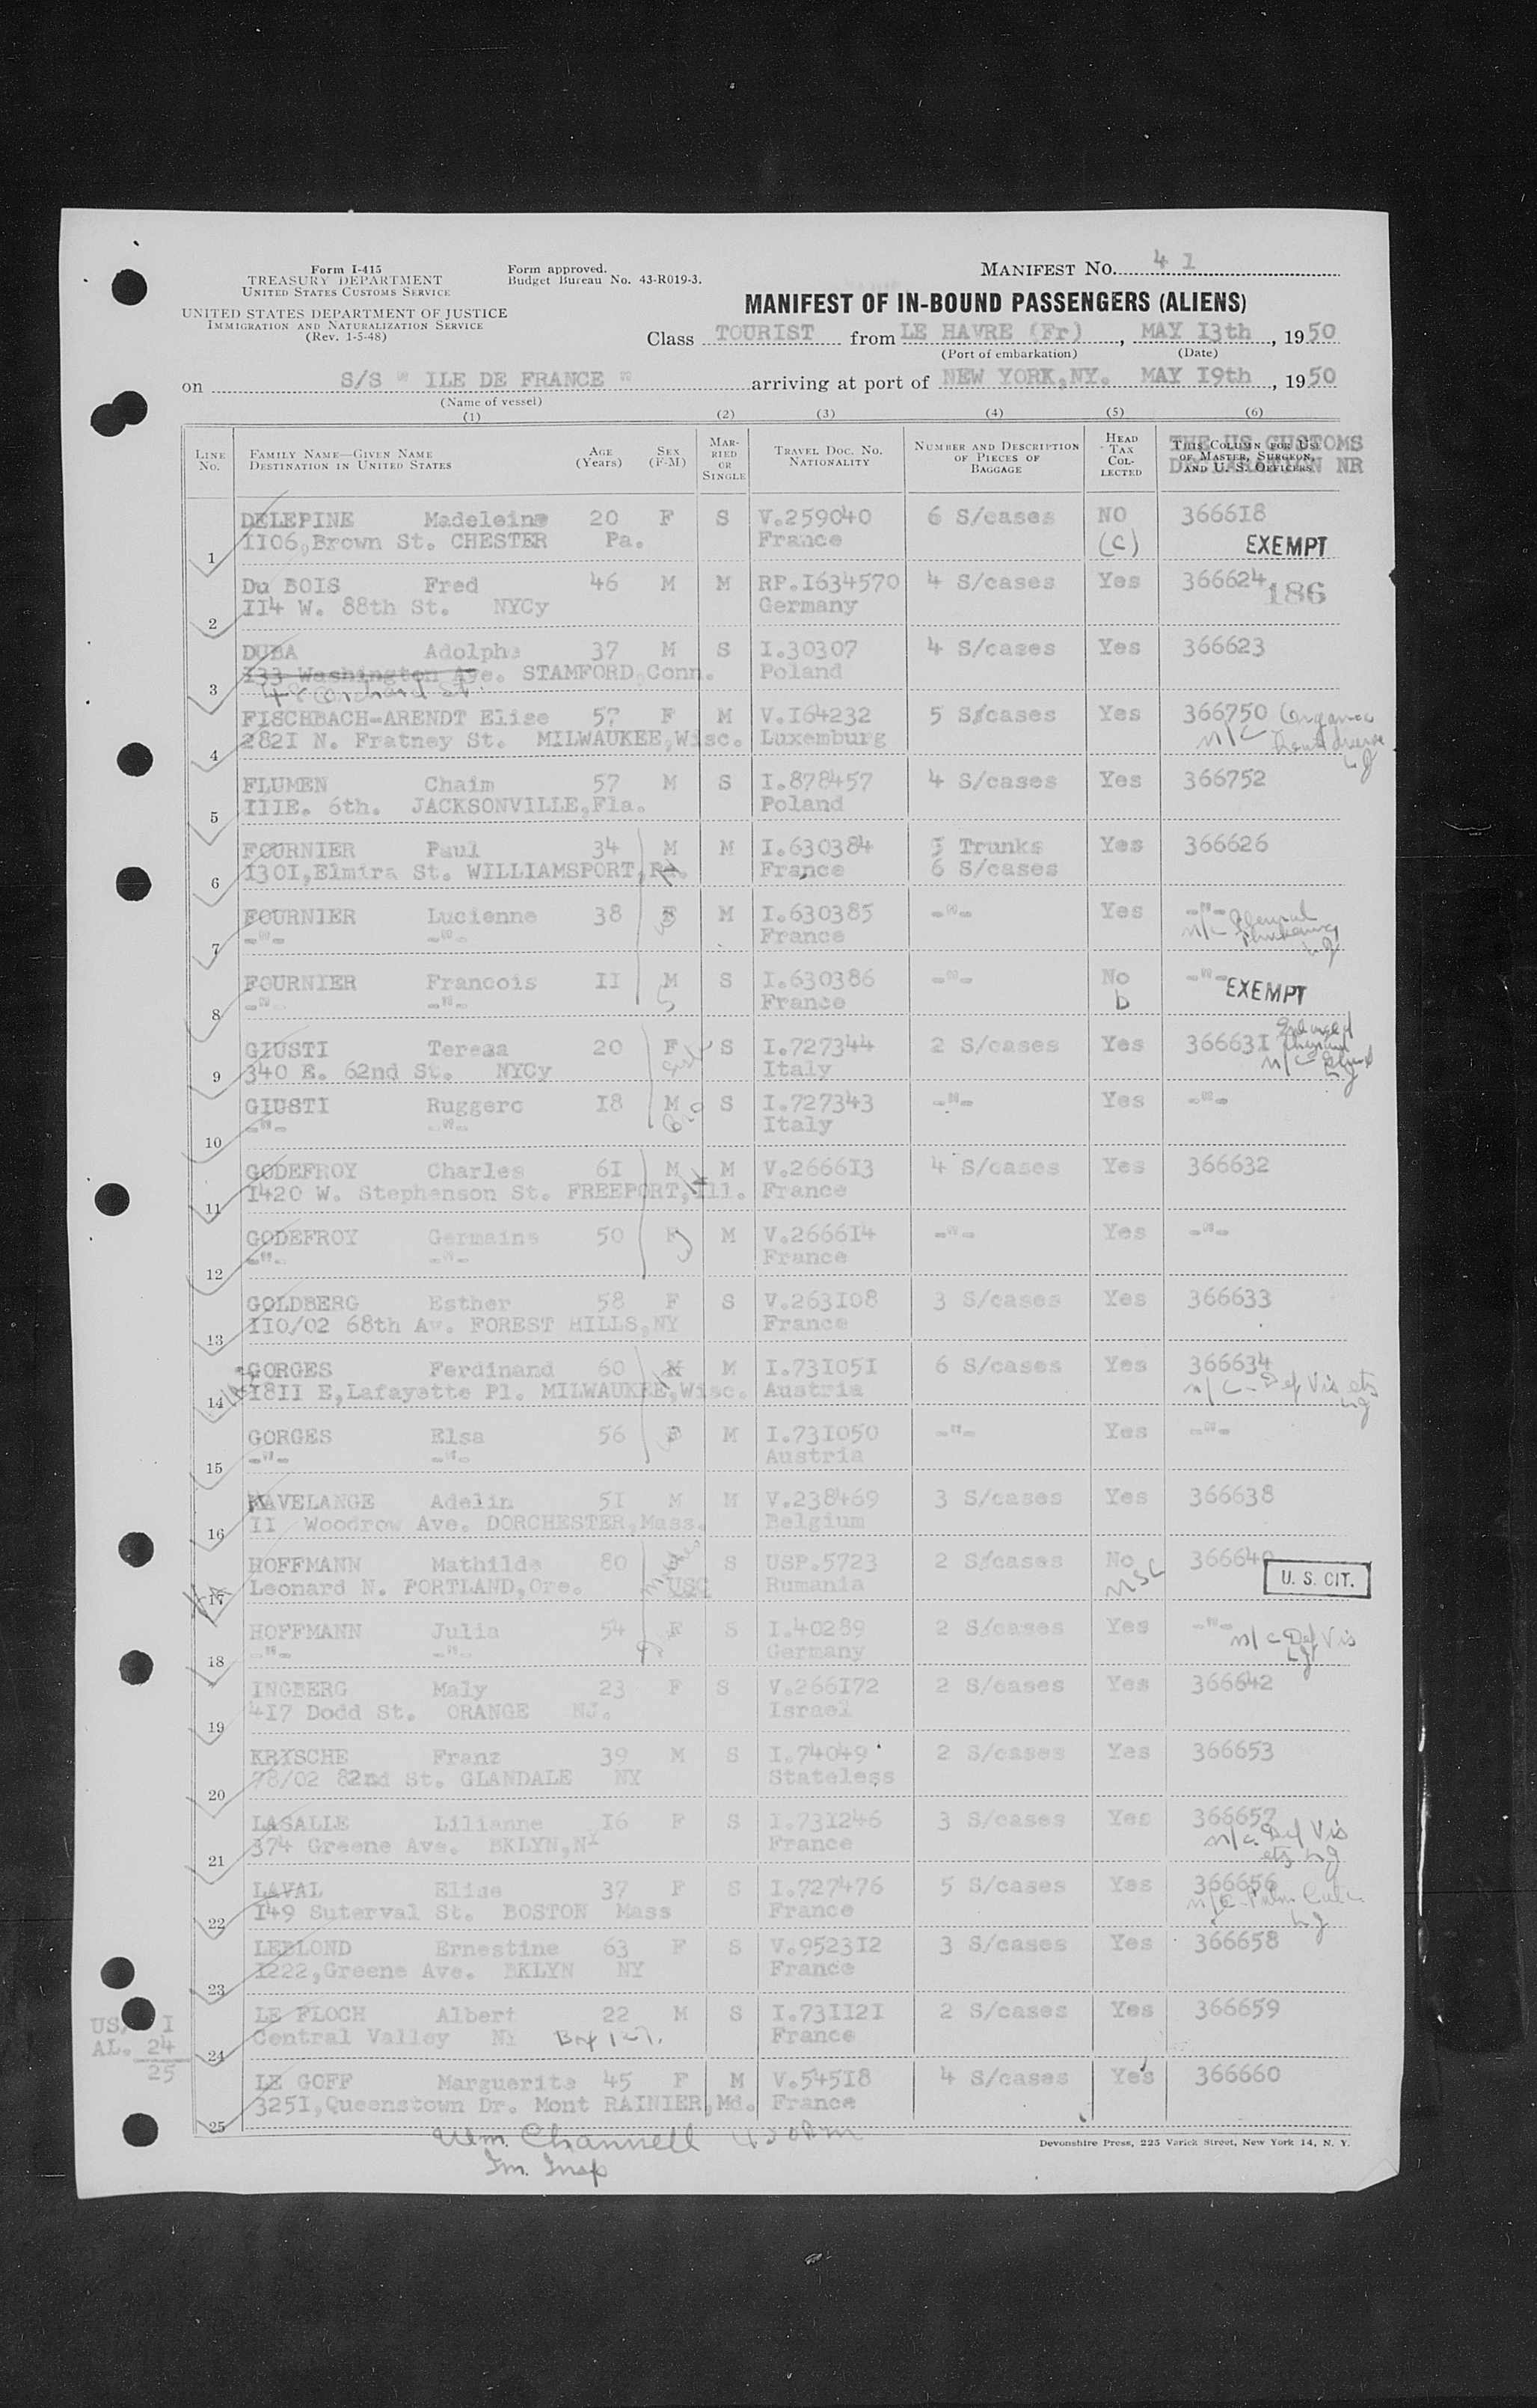 Form I-415
TREASURY DEPARTMENT
UNITED STATES CUSTOMS SERVICE
UNITED STATES DEPARTMENT OF JUSTICE
IMMIGRATION AND NATURALIZATION SERVICE
(Rev. 1-5-48)
Form approved.
Budget Bureau No. 43-R019-3.
MANIFEST No. 41
MANIFEST OF IN-BOUND PASSENGERS (ALIENS)
Class TOURIST from LE HAVRE (Fr), MAY I3th, 1950
(Port of embarkation) (Date)
on S/S " ILE DE FRANCE " arriving at port of NEW YORK,NY. MAY I9th, 1950
(Name of vessel)
(1) (2) (3) (4) (5) (6)
LINE No. FAMILY NAME—GIVEN NAME DESTINATION IN UNITED STATES AGE (Years) SEX (F-M) MARRIED OR SINGLE TRAVEL DOC. NO. NATIONALITY NUMBER AND DESCRIPTION OF PIECES OF BAGGAGE HEAD TAX COLLECTED THIS COLUMN FOR USE OF MASTER, SURGEON, AND U. S. OFFICERS
THE US CUSTOMS DECLARATION NR
DELEPINE Madeleine 20 F S V.259040 6 S/cases NO 3666I8
1 II06,Brown St. CHESTER Pa. France (C) EXEMPT
Du BOIS Fred 46 M M RP.I634570 4 S/cases Yes 366624 186
2 II4 W. 88th St. NYCy Germany
DUBA Adolphe 37 M S I.30307 4 S/cases Yes 366623
I33 Washington Ave. STAMFORD,Conn. Poland
3 48 Orchard St.
FISCHBACH-ARENDT Elise 57 F M V.I64232 5 S/cases Yes 366750 Organic
4 282I N. Fratney St. MILWAUKEE,Wisc. Luxemburg n/c
FLUMEN Chaim 57 M S I.878457 4 S/cases Yes 366752
5 IIIE. 6th. JACKSONVILLE,Fla. Poland
FOURNIER Paul 34 M M I.630384 5 Trunks Yes 366626
6 I30I,Elmira St. WILLIAMSPORT,Pa. France 6 S/cases
FOURNIER Lucienne 38 F M I.630385 -"- Yes -"-
7 -"- -"- France n/c
FOURNIER Francois II M S I.630386 -"- No -"-
8 -"- -"- France b EXEMPT
GIUSTI Teresa 20 F S I.727344 2 S/cases Yes 36663I Enlarged
9 340 E. 62nd St. NYCy Italy thyroid n/c gland
GIUSTI Ruggero I8 M S I.727343 -"- Yes -"-
10 -"- -"- Italy
GODEFROY Charles 6I M M V.2666I3 4 S/cases Yes 366632
11 I420 W. Stephenson St. FREEPORT,Ill. France
GODEFROY Germaine 50 F M V.2666I4 -"- Yes -"-
12 -"- -"- France
GOLDBERG Esther 58 F S V.263I08 3 S/cases Yes 366633
13 II0/02 68th Av. FOREST HILLS,NY France
GORGES Ferdinand 60 M M I.73I05I 6 S/cases Yes 366634
14 I8II E,Lafayette Pl. MILWAUKEE,Wisc. Austria n/c - Def Vis etc
GORGES Elsa 56 F M I.73I050 -"- Yes -"-
15 -"- -"- Austria
HAVELANGE Adelin 5I M M V.238469 3 S/cases Yes 366638
16 II Woodrow Ave. DORCHESTER,Mass. Belgium
HOFFMANN Mathilde 80 S USP.5723 2 S/cases No 366640
17 Leonard N. PORTLAND,Ore. USC Rumania U. S. CIT.
HOFFMANN Julia 54 F S I.40289 2 S/cases Yes -"-
18 -"- -"- Germany n/c Def Vis
INGBERG Maly 23 F S V.266I72 2 S/cases Yes 366642
19 4I7 Dodd St. ORANGE NJ. Israel
KRYSCHE Franz 39 M S I.74049 2 S/cases Yes 366653
20 78/02 82nd St. GLANDALE NY Stateless
LASALLE Lilianne I6 F S I.73I246 3 S/cases Yes 366657
21 374 Greene Ave. BKLYN,NY France n/c Def Vis etc
LAVAL Elise 37 F S I.727476 5 S/cases Yes 366656
22 I49 Suterval St. BOSTON Mass France n/c
LEBLOND Ernestine 63 F S V.9523I2 3 S/cases Yes 366658
23 I222,Greene Ave. BKLYN NY France
LE FLOCH Albert 22 M S I.73II2I 2 S/cases Yes 366659
24 Central Valley NY Box 127. France
LE GOFF Marguerite 45 F M V.545I8 4 S/cases Yes 366660
25 325I,Queenstown Dr. Mont RAINIER,Md. France
US. I
AL. 24
25
Wm. Channell
Im. Insp
Devonshire Press, 225 Varick Street, New York 14, N. Y.